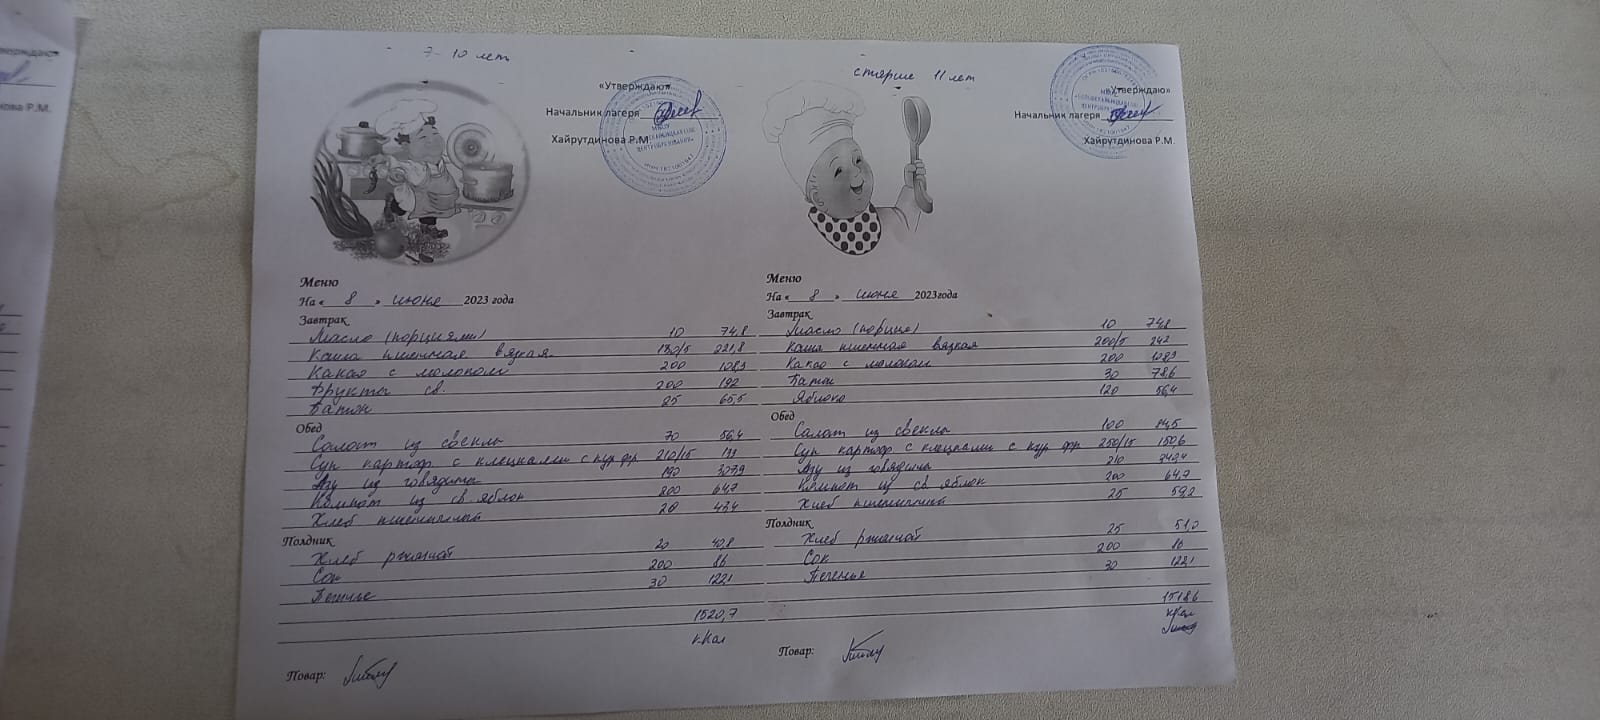 7-10 лет
«Утверждаю»
Начальник лагеря
Хайрутдинова Р.М.
Меню
На « 8 » июня 2023 года
Завтрак
Масло (порциями) 10 74,8
Каша пшенная вязкая 180/5 221,8
Какао с молоком 200 108,3
Фрукты св. 200 192
Батон 25 65,5
Обед
Салат из свеклы 70 56,4
Суп картоф. с клецками с кур фр 210/15
Азу из говядины 190
Компот из св. яблок 200 64,7
Хлеб пшеничный 20 43,4
Полдник
Хлеб ржаной 20 40,8
Сок 200 86
Печенье 30 122,1
1520,7
кКал
Повар:
старше 11 лет
«Утверждаю»
Начальник лагеря
Хайрутдинова Р.М.
Меню
На « 8 » июня 2023года
Завтрак
Масло (порция) 10 74,8
Каша пшенная вязкая 200/5 242
Какао с молоком 200 108,3
Батон 30 78,6
Яблоко 120 56,4
Обед
Салат из свеклы 100
Суп картоф с клецками с кур фр 250/15 150,6
Азу из говядины 210
Компот из св яблок 200 64,7
Хлеб пшеничный 25 59,2
Полдник
Хлеб ржаной 25 51,0
Сок 200 86
Печенье 30 122,1
1518,6
кКал
Повар:
тверждаю»
нова Р.М.